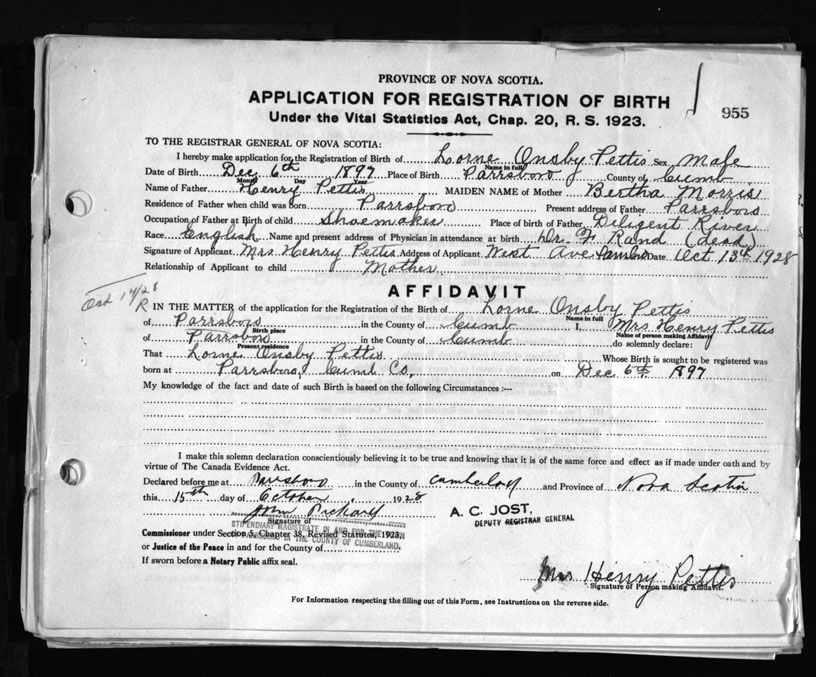 PROVINCE OF NOVA SCOTIA.
APPLICATION FOR REGISTRATION OF BIRTH
955
Under the Vital Statistics Act, Chap. 20, R. S. 1923.
TO THE REGISTRAR GENERAL OF NOVA SCOTIA:
I hereby make application for the Registration of Birth of Lorne Onsby Pettis Sex Male
Name in full
Date of Birth Dec 6th 1897 Place of Birth Parrsboro County of Cumb
Month Day Year
Name of Father Henry Pettis MAIDEN NAME of Mother Bertha Morris
Residence of Father when child was born Parrsboro Present address of Father Parrsboro
Occupation of Father at Birth of child Shoemaker Place of birth of Father Diligent River
Race English Name and present address of Physician in attendance at birth Dr. F Rand (dead)
Signature of Applicant Mrs Henry Pettis Address of Applicant West Ave Date Oct 13th 1928
Relationship of Applicant to child Mother
Oct 17/28
R
AFFIDAVIT
IN THE MATTER of the application for the Registration of the Birth of Lorne Onsby Pettis
Name in full
of Parrsboro in the County of Cumb I, Mrs Henry Pettis
Birth place Name of person making Affidavit
of Parrsboro in the County of Cumb do solemnly declare:
Present residence
That Lorne Onsby Pettis Whose Birth is sought to be registered was
born at Parrsboro, Cumb Co, on Dec 6th 1897
My knowledge of the fact and date of such Birth is based on the following Circumstances :—
I make this solemn declaration conscientiously believing it to be true and knowing that it is of the same force and effect as if made under oath and by
virtue of The Canada Evidence Act.
Declared before me at Parrsboro in the County of Cumberland and Province of Nova Scotia
this 15th day of October, 1928
John Pickard
A. C. JOST,
DEPUTY REGISTRAR GENERAL
Signature of
STIPENDIARY MAGISTRATE IN AND FOR THE TOWN
Commissioner under Section 5, Chapter 38, Revised Statutes, 1923,
OF PARRSBORO IN THE COUNTY OF CUMBERLAND.
or Justice of the Peace in and for the County of
If sworn before a Notary Public affix seal.
Mrs Henry Pettis
Signature of Person making Affidavit.
For Information respecting the filling out of this Form, see Instructions on the reverse side.